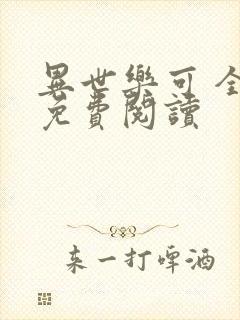 異世樂可 全
免費閱讀
来一打啤酒